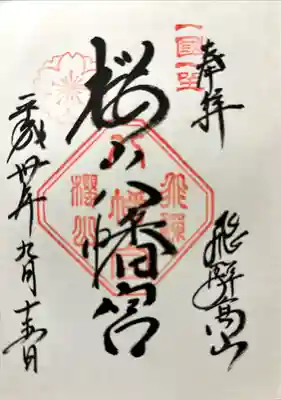 奉拝
一國一社
飛騨高山
桜山八幡宮
飛騨
八幡宮
櫻山
平成卅年九月十五日